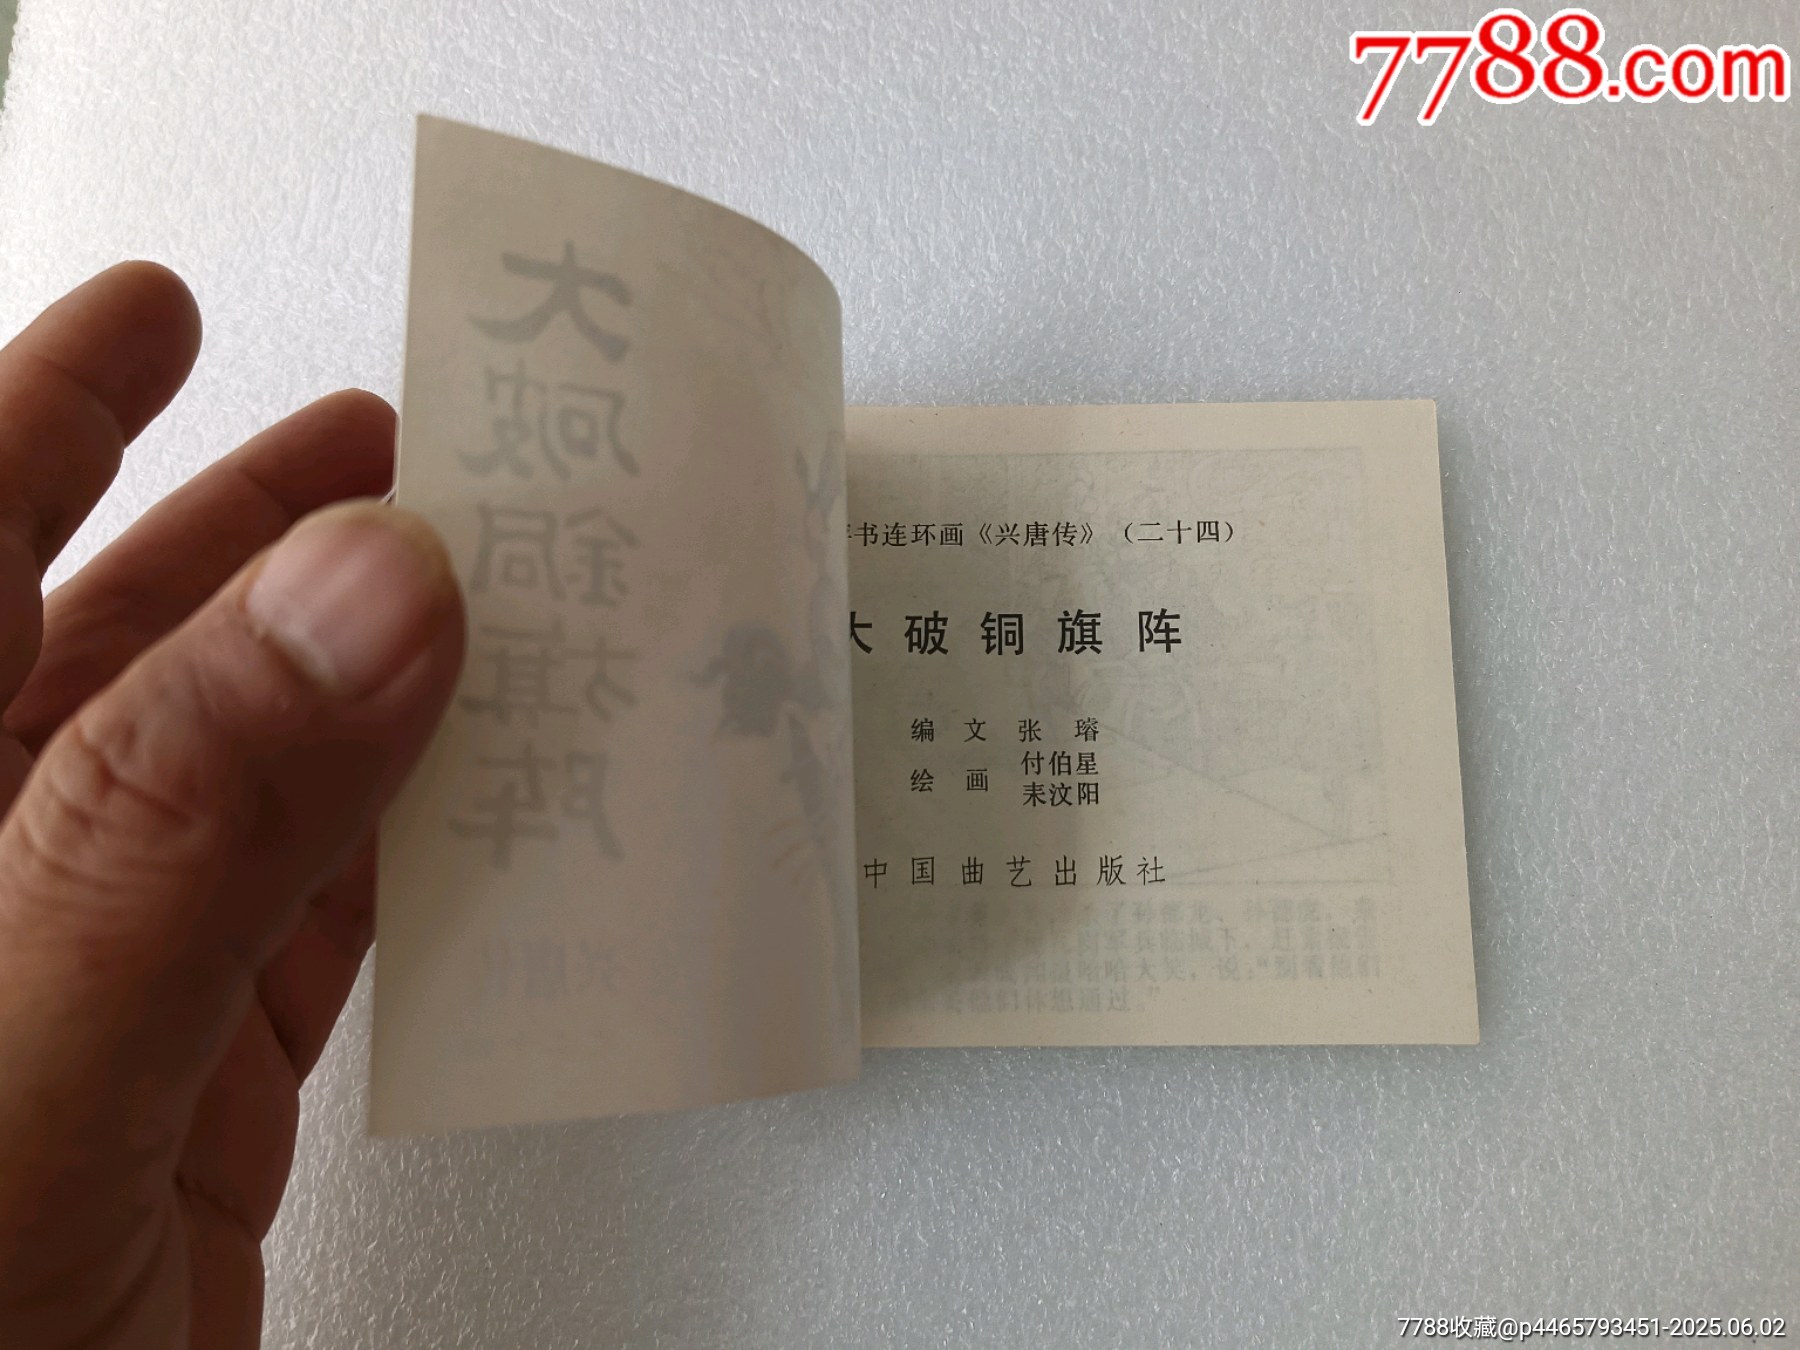 7788.com
大破铜旗阵
兴唐传
书连环画《兴唐传》（二十四）
大破铜旗阵
编 文 张 璿
绘 画 付伯星
耒汶阳
中国曲艺出版社
7788收藏@p4465793451-2025.06.02